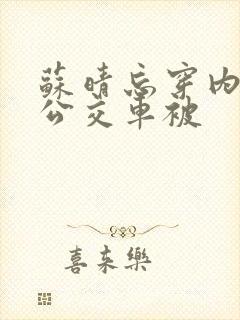 蘇晴忘穿内
公交車被
喜来樂